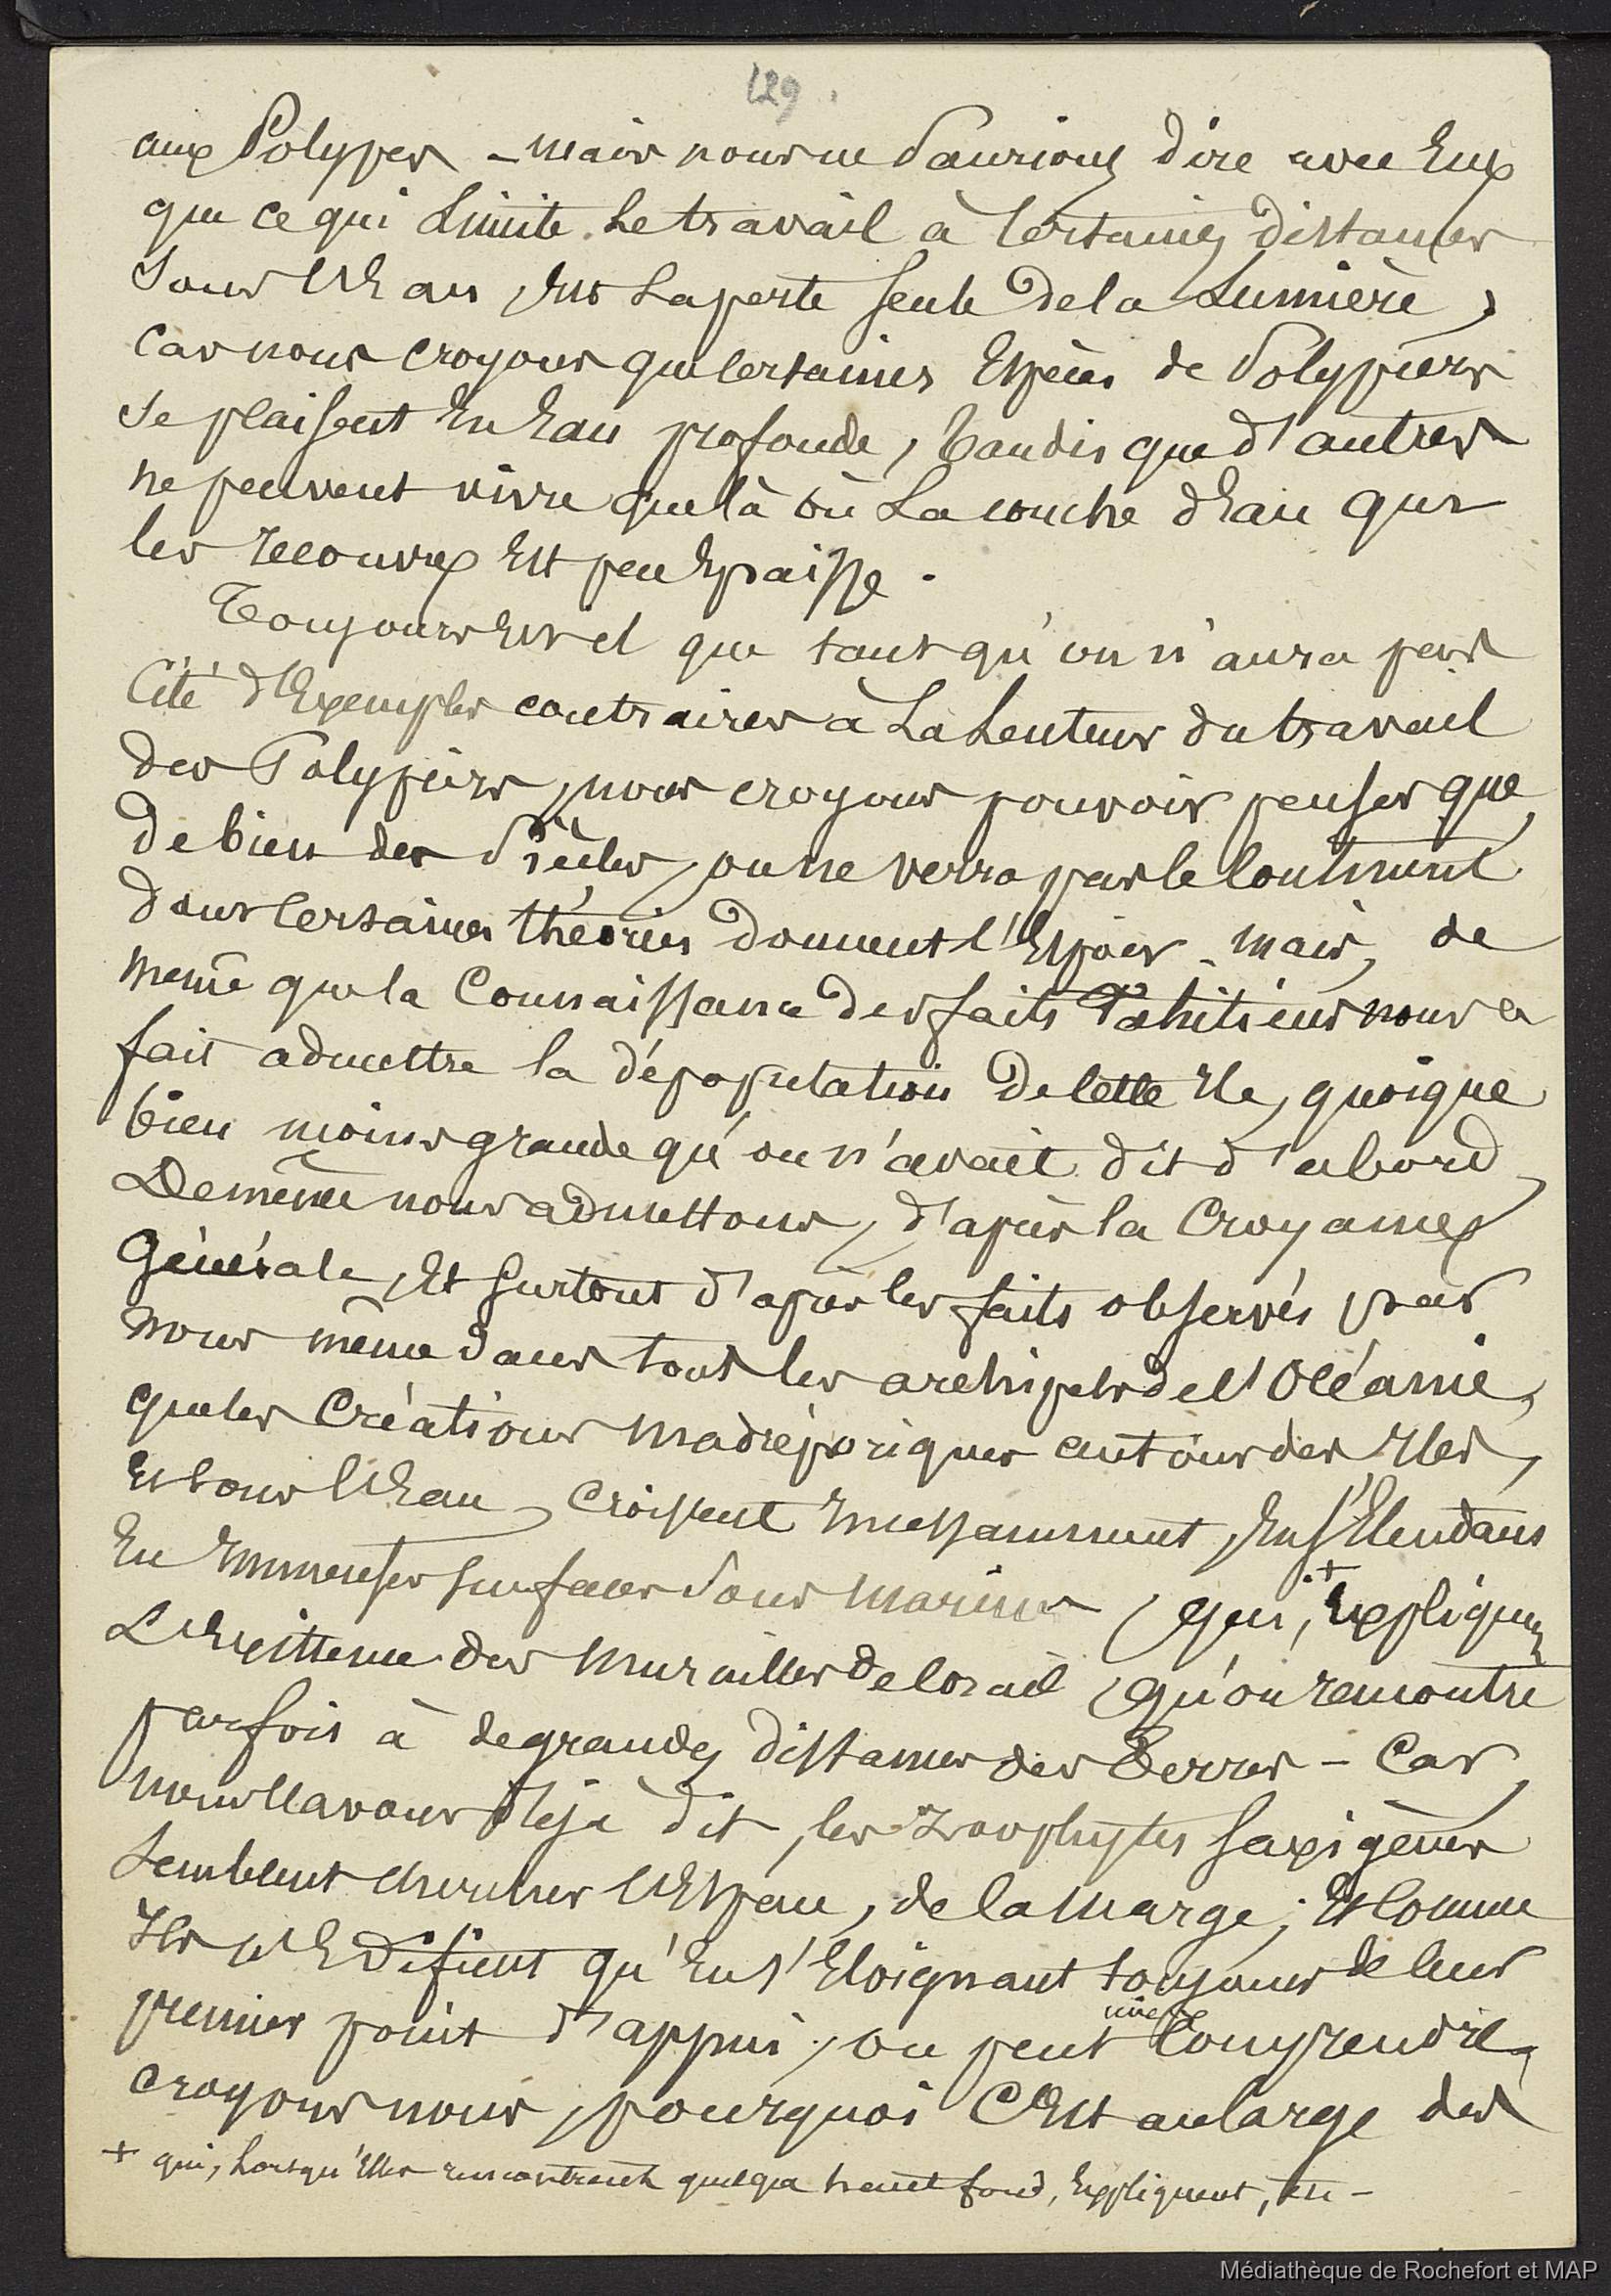 129.
aux Polypes - mais nous ne Saurions dire avec Eux
que ce qui Limite Le travail à Certaines distances
Sous L'Eau, Est La perte seule de la Lumière,
Car nous croyons que Certaines Espèces de Polypiers
se plaisent En Eau profonde, tandis que d'autres
ne peuvent vivre que là où La couche d'Eau qui
les recouvre Est peu Epaisse.
Toujours Est il que tant qu'on n'aura pas
Cité d'Exemples contraires à La Lenteur du travail
des Polypiers, nous croyons pouvoir penser que,
de bien des Siècles, on ne verra pas le Continent
dont Certaines théories donnent l'Espoir - mais, de
même que la Connaissance des faits Tahitiens nous a
fait admettre la dépopulation de Cette Ile, quoique
bien moins grande qu'on n'avait dit d'abord,
De même nous admettons, d'après la Croyance
Générale, Et surtout d'après les faits observés par
nous même dans tous les archipels de l'Océanie,
que les Créations madréporiques autour des Iles,
Et sous L'Eau, Croissent Incessamment, En s'Etendant
En Immenses surfaces Sous Marines, qui, + Expliquent
L'Existence des Murailles de Corail, qu'on rencontre
parfois à de grandes distances des Terres - Car,
nous l'avons déjà dit, les Zoophytes saxigènes
Semblent chercher L'Espace, de la Marge; Et Comme
Ils n'Edifient qu'En s'Eloignant toujours de leur
premier point d'appui, on peut Comprendre,
croyons nous, pourquoi C'Est au large des
+ qui, Lorsqu'Elles rencontrent quelque haut fond, Expliquent, etc -
Médiathèque de Rochefort et MAP